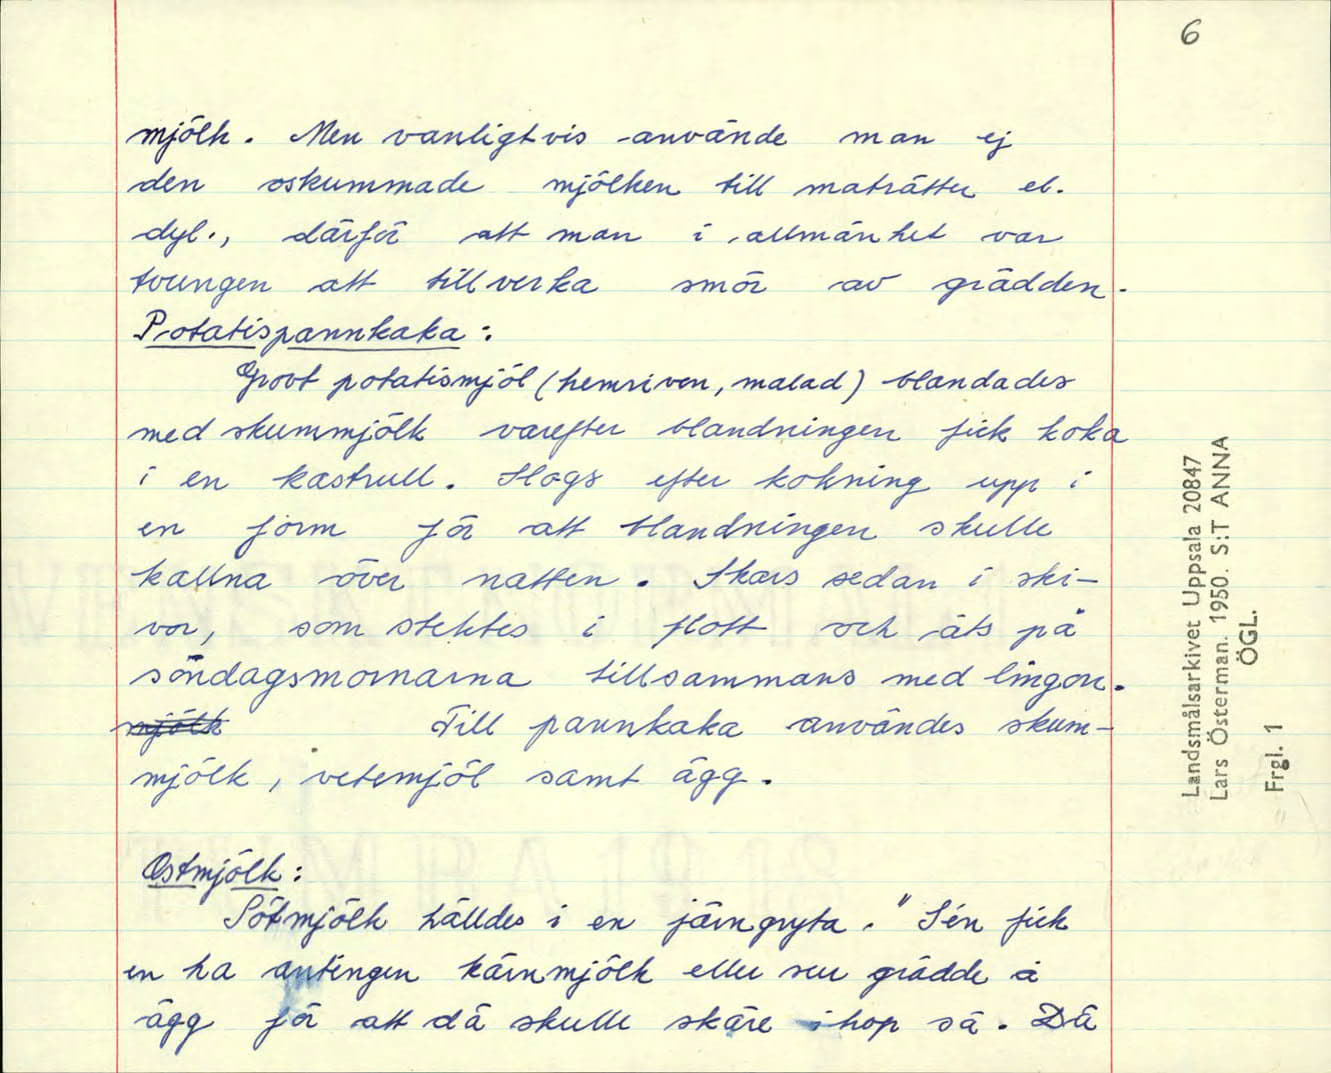 6
mjölk. Men vanligtvis använde man ej
den oskummade mjölken till maträtter el.
dyl., därför att man i allmänhet var
tvungen att tillverka smör av grädden.
Potatispannkaka:
Grovt potatismjöl (hemriven, malad) blandades
med skummjölk varefter blandningen fick koka
i en kastrull. Slogs efter kokning upp i
en form för att blandningen skulle
kallna över natten. Skars sedan i ski-
vor, som stektes i flott och äts på
söndagsmornarna tillsammans med lingon.
mjölk Till pannkaka användes skum-
mjölk, vetemjöl samt ägg.
Ostmjölk:
Sötmjölk hälldes i en järngryta. "Sén fick
en ha antingen kärnmjölk eller sur grädde å
ägg för att dä skulle skäre ihop sä. Dä
Landsmålsarkivet Uppsala 20847
Lars Österman. 1950. S:T ANNA
ÖGL.
Frgl. 1